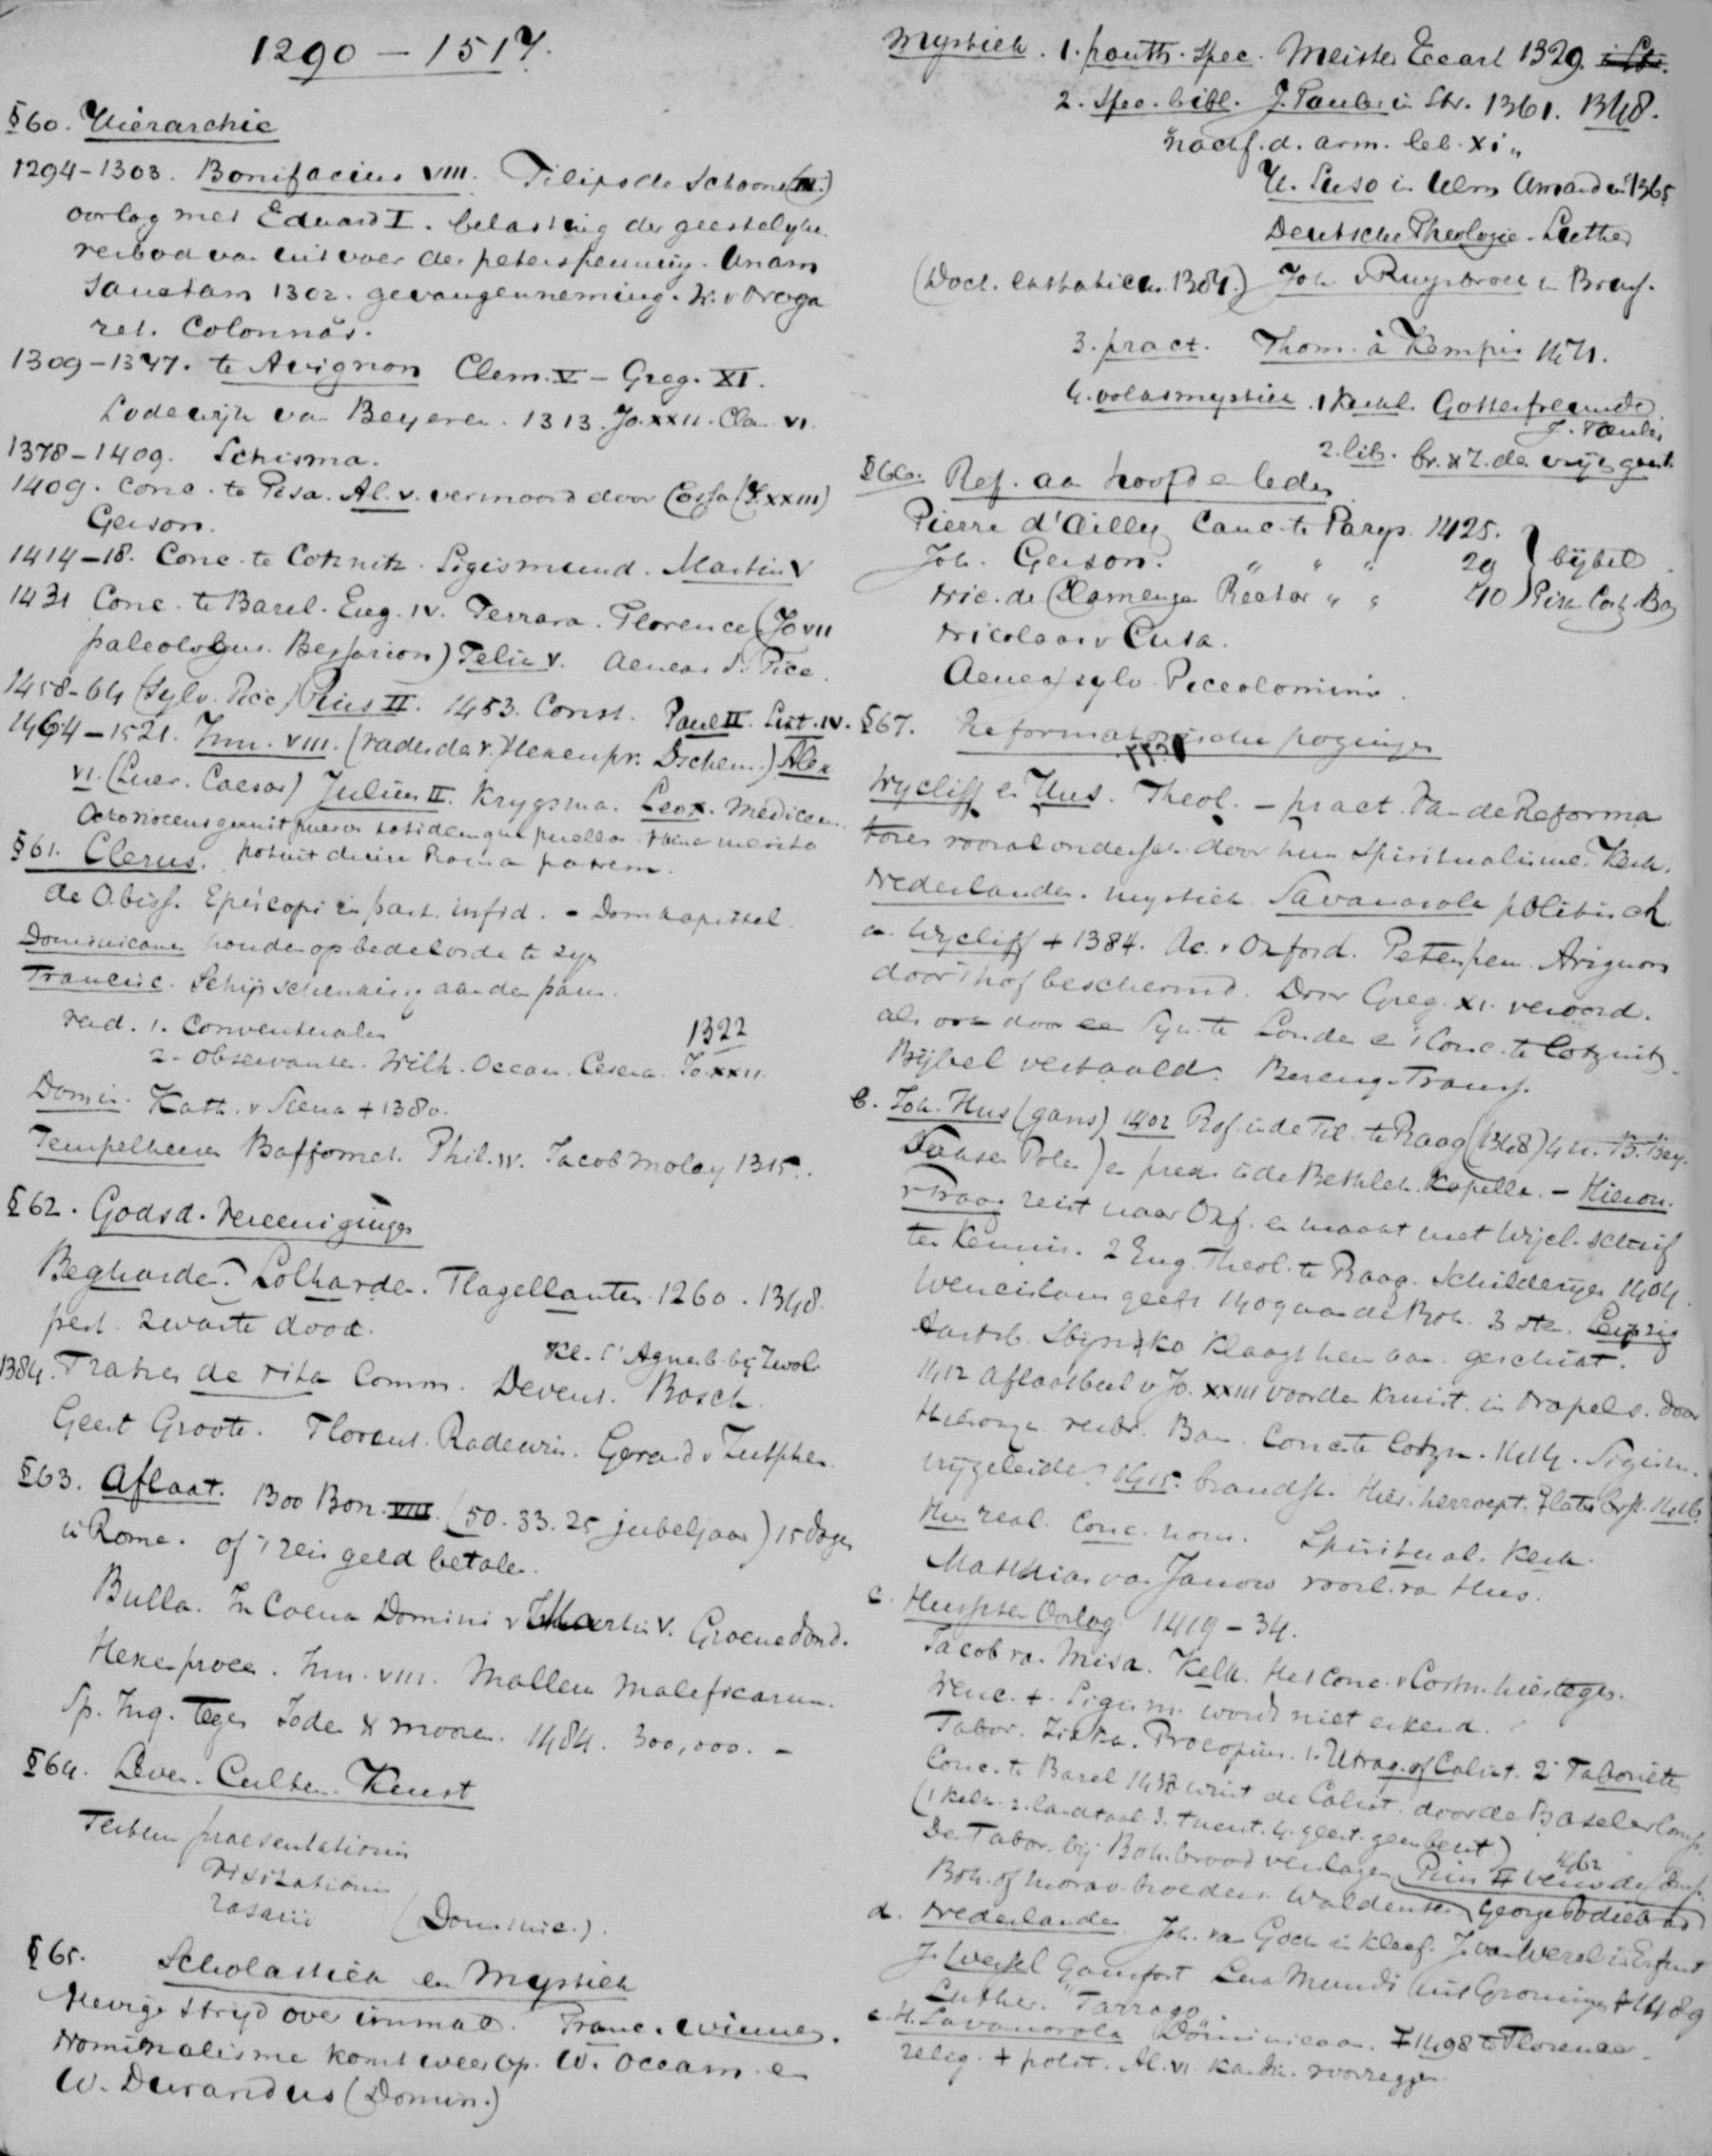 1290 – 1517.
§60. Hierarchie
1294–1303. Bonifacius VIII. Filips de Schoone (IV.)
oorlog met Eduard I. belasting der geestelyken.
verbod van uitvoer der peterspenning. Unam
Sanctam 1302. gevangenneming. W. v Noga
ret. Colonna's.
1309–1377. te Avignon Clem. V – Greg. XI.
Lodewijk van Beyeren. 1313. Jo. XXII. Cle. VI.
1378–1409. Schisma.
1409. Conc. te Pisa. Al. V. vermoord door Cossa (J. XXIII)
Gerson.
1414–18. Conc. te Cotznitz. Sigismund. Martin V
1431 Conc. te Basel. Eug. IV. Ferrara. Florence (Jo VII
paleologus. Bessarion) Felix V. Aeneas S. Picc.
1458–64 (Sylv. Picc) Pius II. 1453. Const. Paul II. Sixt. IV.
1464–1521. Inn. VIII. (vader da v. Hexenpr. Dschem.) Alex
VI. (Lucr. Caesar) Julius II. Krygsma. Leo X. Medicaeer.
Octo nocens genuit pueros totidemque puellas Hinc merito
potuit dicere Roma patrem.
§61. Clerus.
de O. biss. Episcopi in part. infid. – Domkapittel
Dominicanen houden op bedelorde te zyn
Francisc. Schijnschenking aan den paus.
verd. 1. Conventualen
2. Observanten. Wilh. Occam. Cesena. 1322 Jo. XXII.
Domin. Kath. v Siena + 1380.
Tempelheeren Baffomet. Phil. IV. Jacob Molay 1315.
§62. Godsd. Vereenigingen
Begharden. Lolharden. Flagellanten 1260. 1348.
pest. Zwarte dood.
Kl. St Agnesb. bij Zwol
1384. Fratres de vita Comm. Devent. Bosch.
Geert Groote. Florent. Radewin. Gerard v Zutphen.
§63. Aflaat. 1300 Bon. VIII. (50. 33. 25 jubeljaar) 15 dagen
in Rome. of 't reisgeld betalen.
Bulla. In Coena Domini v Martin V. Groene Dond.
Hexenproce. Inn. VIII. Malleus Maleficarum.
Sp. Inq. tegen Joden & mooren. 1484. 300,000. –
§64. Leven. Cultus. Kunst
Festum praesentationis
visitationis
rosarii (Dominic.).
§65. Scholastiek en Mystiek
Hevige stryd over immac. Franc. winnen.
Nominalisme komt weer op. W. Occam en
W. Durandus (Domin.)
Mystiek. 1. panth. spec. Meister Eccart 1329.
2. spec. bibl. J. Tauler in Str. 1361. 1348.
nachf. d. arm. leb. Xi
H. Suso in Ulm Amandus 1365
Deutsche Theologie – Luther
(Doct. exstaticus. 1384.) Joh v Ruysbroek in Brus.
3. pract. Thom. à Kempis 1471.
4. volksmystiek. 1 kerkel. Gottesfreunde.
J. Tauler
2. lib. br. & z. des vrijen geest.
§66. Ref. aan hoofd en leden
Pierre d'Ailly Canc. te Parys. 1425.
Joh. Gerson. " " " 29 bijbel
Nic. de Clamenge Rector " " 40 Pisa Cost. Bas
Nicolaas v Cusa.
Aeneas sylv. Piccolomini.
§67. Reformatorische pogingen
Wycliff en Hus. Theol. – pract. Van de Reforma
toren vooral ondersch. door hun Spiritualisme. Kerk.
Nederlanden. mystiek Savanarola politisch
a. Wycliff + 1384. Ac. v Oxford. Peterspen. Avignon
door 't hof beschermd. Door Greg. XI. veroord.
als ook door een Syn. te Londen en 't Conc. te Cotznitz.
Bijbel vertaald. Bereng. Transs.
b. Joh. Hus (gans) 1402 Prof. in de Fil. te Praag (1348) 4 n. B. Bey.
Saksen Polen) en pred. in de Bethleh. Kapelle. – Hieron.
v Praag reist naar Oxf. en maakt met Wycl. schrif
ten kennis. 2 Eng. Theol. te Praag. Schilderijen 1404.
Wenceslaus geeft 1409 aan de Boh. 3 ste. Leipzig
Aartsb. Sbynjko klaagt hem aan. geschikt.
1412 aflaatbul v Jo. XXIII voor den kruist. in Napels. Door
Hieronym. verbr. Ban. Conc. te Cotzn. 1414. Sigism.
vrygeleide. 1415. brandst. Hier. herroept. Later brst. 1416.
Hus real. Conc. nom. Spiritual. Kerk.
Matthias van Janow voorl. van Hus.
c. Hussiten Oorlog 1419–34.
Jacob van Misa. Kelk. Het Conc. v Costn. hiertegen.
Wenc. +. Sigism. wordt niet erkend.
Tabor. Ziska. Procopius. 1. Utraq. of Calixt. 2. Taboriten
Conc. te Basel 1433 wint de Calixt. door de Baseler Comp.
(1 kelk. 2. landtaal. 3. tucht. 4. geest. geen bezit)
De Tabor. bij Boh. brood verslagen. Pius II verw de Comp. 1462
Boh. of Morav. broeders. Waldensen. George Podiebrad
d. Nederlanden. Joh. van Goch in Kleef. J. van Wesel in Erfurt
J. Wessel Gansfort Lux Mundi uit Groningen + 1489
Luther. "Farrago".
e. H. Savonorola Dominicaan. + 1498 te Florence.
relig. + polit. Al. VI. kardin. voorzeggen.